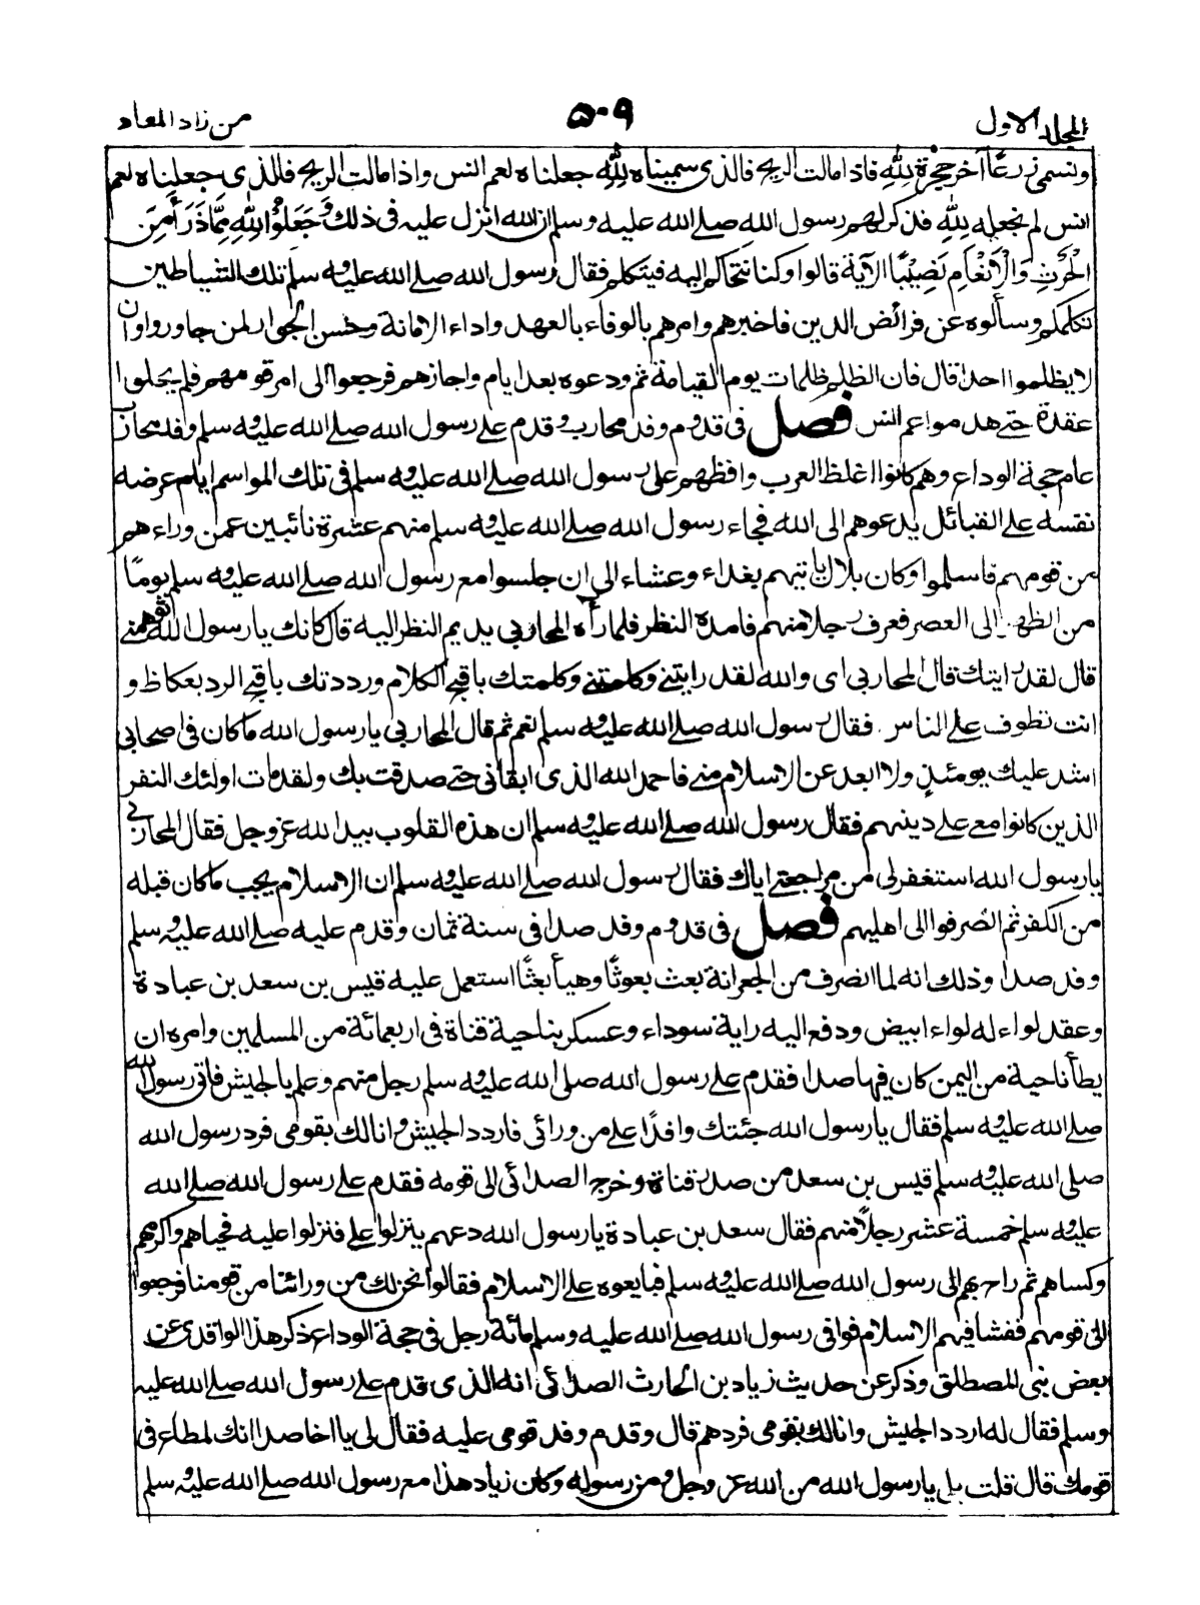 المجلد الاول
۵۰۹
من زاد المعاد
ونسمى زرعًا آخر حجرة لله فاذا مالت الريح فالذى سميناه لله جعلناه لعم انس واذا مالت الريح فالذى جعلناه لعم
انس لم نجعله لله فذكر لهم رسول الله صلى الله عليه وسلم ان الله انزل عليه فى ذلك وَجَعَلُوْا لِلّٰهِ مِمَّا ذَرَأَ مِنَ
الْحَرْثِ وَالْاَنْعَامِ نَصِيْبًا الآية قالوا وكنا نتحاكم اليه فيتكلم فقال رسول الله صلى الله عليه وسلم تلك الشياطين
تكلمكم وسألوه عن فرائض الدين فاخبرهم وامرهم بالوفاء بالعهد واداء الامانة وحسن الجوار لمن جاوروا وان
لا يظلموا احدا قال فان الظلم ظلمات يوم القيامة ثم ودعوه بعد ايام واجازهم فرجعوا الى امر قومهم فلم يحلوا
عقدة حتى هدموا عم انس فصل فى قدوم وفد محارب وقدم على رسول الله صلى الله عليه وسلم وفد محارب
عام حجة الوداع وهم كانوا اغلظ العرب وافظهم على رسول الله صلى الله عليه وسلم فى تلك المواسم ايام عرضه
نفسه على القبائل يدعوهم الى الله فجاء رسول الله صلى الله عليه وسلم منهم عشرة نائبين عمن وراءهم
من قومهم فاسلموا وكان بلال ياتيهم بغداء وعشاء الى ان جلسوا مع رسول الله صلى الله عليه وسلم يومًا
من الظهر الى العصر فعرف رجلا منهم فامده النظر فلما رأه المحاربى يديم النظر اليه قال كانك يا رسول الله توهمنى
قال لقد رايتك قال المحاربى اى والله لقد رايتنى وكلمتنى وكلمتك باقبح الكلام ورددتك باقبح الرد بعكاظ و
انت تطوف على الناس فقال رسول الله صلى الله عليه وسلم نعم ثم قال المحاربى يا رسول الله ما كان فى اصحابى
اشد عليك يومئذ ولا ابعد عن الاسلام منى فاحمد الله الذى ابقانى حتى صدقت بك ولقد مات اولئك النفر
الذين كانوا معى على دينهم فقال رسول الله صلى الله عليه وسلم ان هذه القلوب بيد الله عز وجل فقال المحاربى
يا رسول الله استغفر لى من مراجعتى اياك فقال رسول الله صلى الله عليه وسلم ان الاسلام يجب ما كان قبله
من الكفر ثم انصرفوا الى اهليهم فصل فى قدوم وفد صدا فى سنة ثمان وقدم عليه صلى الله عليه وسلم
وفد صدا وذلك انه لما انصرف من الجعرانة بعث بعوثًا وهيأ بعثًا استعمل عليه قيس بن سعد بن عبادة
وعقد لواء له لواء ابيض ودفع اليه راية سوداء وعسكر بناحية قناة فى اربعمائة من المسلمين وامره ان
يطأ ناحية من اليمن كان فيها صدا فقدم على رسول الله صلى الله عليه وسلم رجل منهم وعلم بالجيش فاتى رسول الله
صلى الله عليه وسلم فقال يا رسول الله جئتك وافدًا على من ورائى فاردد الجيش وانا لك بقومى فرد رسول الله
صلى الله عليه وسلم قيس بن سعد من صدر قناة وخرج الصدائى الى قومه فقدم على رسول الله صلى الله
عليه وسلم خمسة عشر رجلًا منهم فقال سعد بن عبادة يا رسول الله دعهم ينزلوا على فنزلوا عليه فحياهم واكرمهم
وكساهم ثم راح بهم الى رسول الله صلى الله عليه وسلم فبايعوه على الاسلام فقالوا نحن لك من ورائنا من قومنا فرجعوا
الى قومهم ففشا فيهم الاسلام فوافى رسول الله صلى الله عليه وسلم مائة رجل فى حجة الوداع ذكر هذا الواقدى عن
بعض بنى المصطلق وذكر عن حديث زياد بن الحارث الصدائى انه الذى قدم على رسول الله صلى الله عليه
وسلم فقال له اردد الجيش وانا لك بقومى فردهم قال وقدم وفد قومى عليه فقال لى يا اخا صدا انك لمطاع فى
قومك قال قلت بلى يا رسول الله من الله عز وجل ومن رسوله وكان زياد هذا مع رسول الله صلى الله عليه وسلم